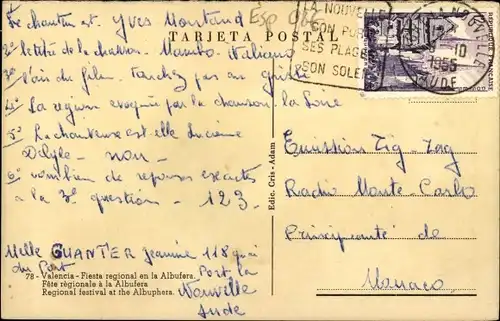 Esp 066
TARJETA POSTAL
LA NOUVELLE
SON PORT
SES PLAGES
SON SOLEIL
LA NOUVELLE
10
1955
AUDE
Le chanteur est Yves Montand
2° le titre de la chanson. Mambo italiano
3° Nom du film. touchez pas au grisbi
4° La region evoquée par la chanson la Loire
5° La chanteuse est elle Lucienne
Delyle - non -
6° combien de reponses exactes
a la 3e question - 123.
Mlle GUANTER Jeannine 118 quai
du Port
Port la
Nouvelle
Aude
78 - Valencia - Fiesta regional en la Albufera.
Fête règionale à la Albufera
Regional festival at the Albuphera.
Edic. Cris-Adam
Emission Zig-Zag
Radio Monte-Carlo
Principauté de
Monaco